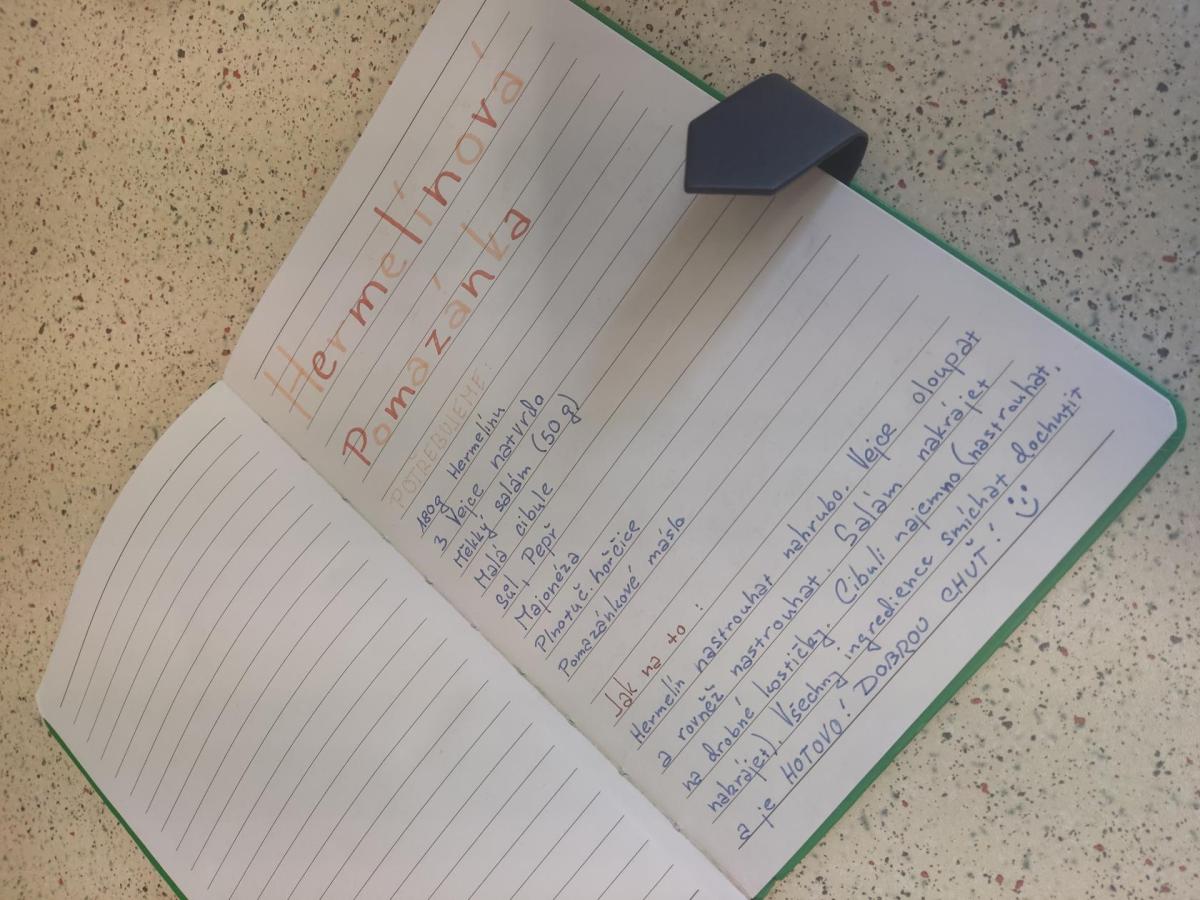 Hermelínová
Pomazánka
POTŘEBUJEME:
180g Hermelínu
3 Vejce natvrdo
Měkký salám (50g)
Malá cibule
Sůl, Pepř
Majonéza
Plnotuč. hořčice
Pomazánkové máslo
Jak na to:
Hermelín nastrouhat nahrubo. Vejce oloupat
a rovněž nastrouhat. Salám nakrájet
na drobné kostičky. Cibuli najemno (nastrouhat,
nakrájet). Všechny ingredience smíchat dochutit
a je HOTOVO! DOBROU CHUŤ! :)